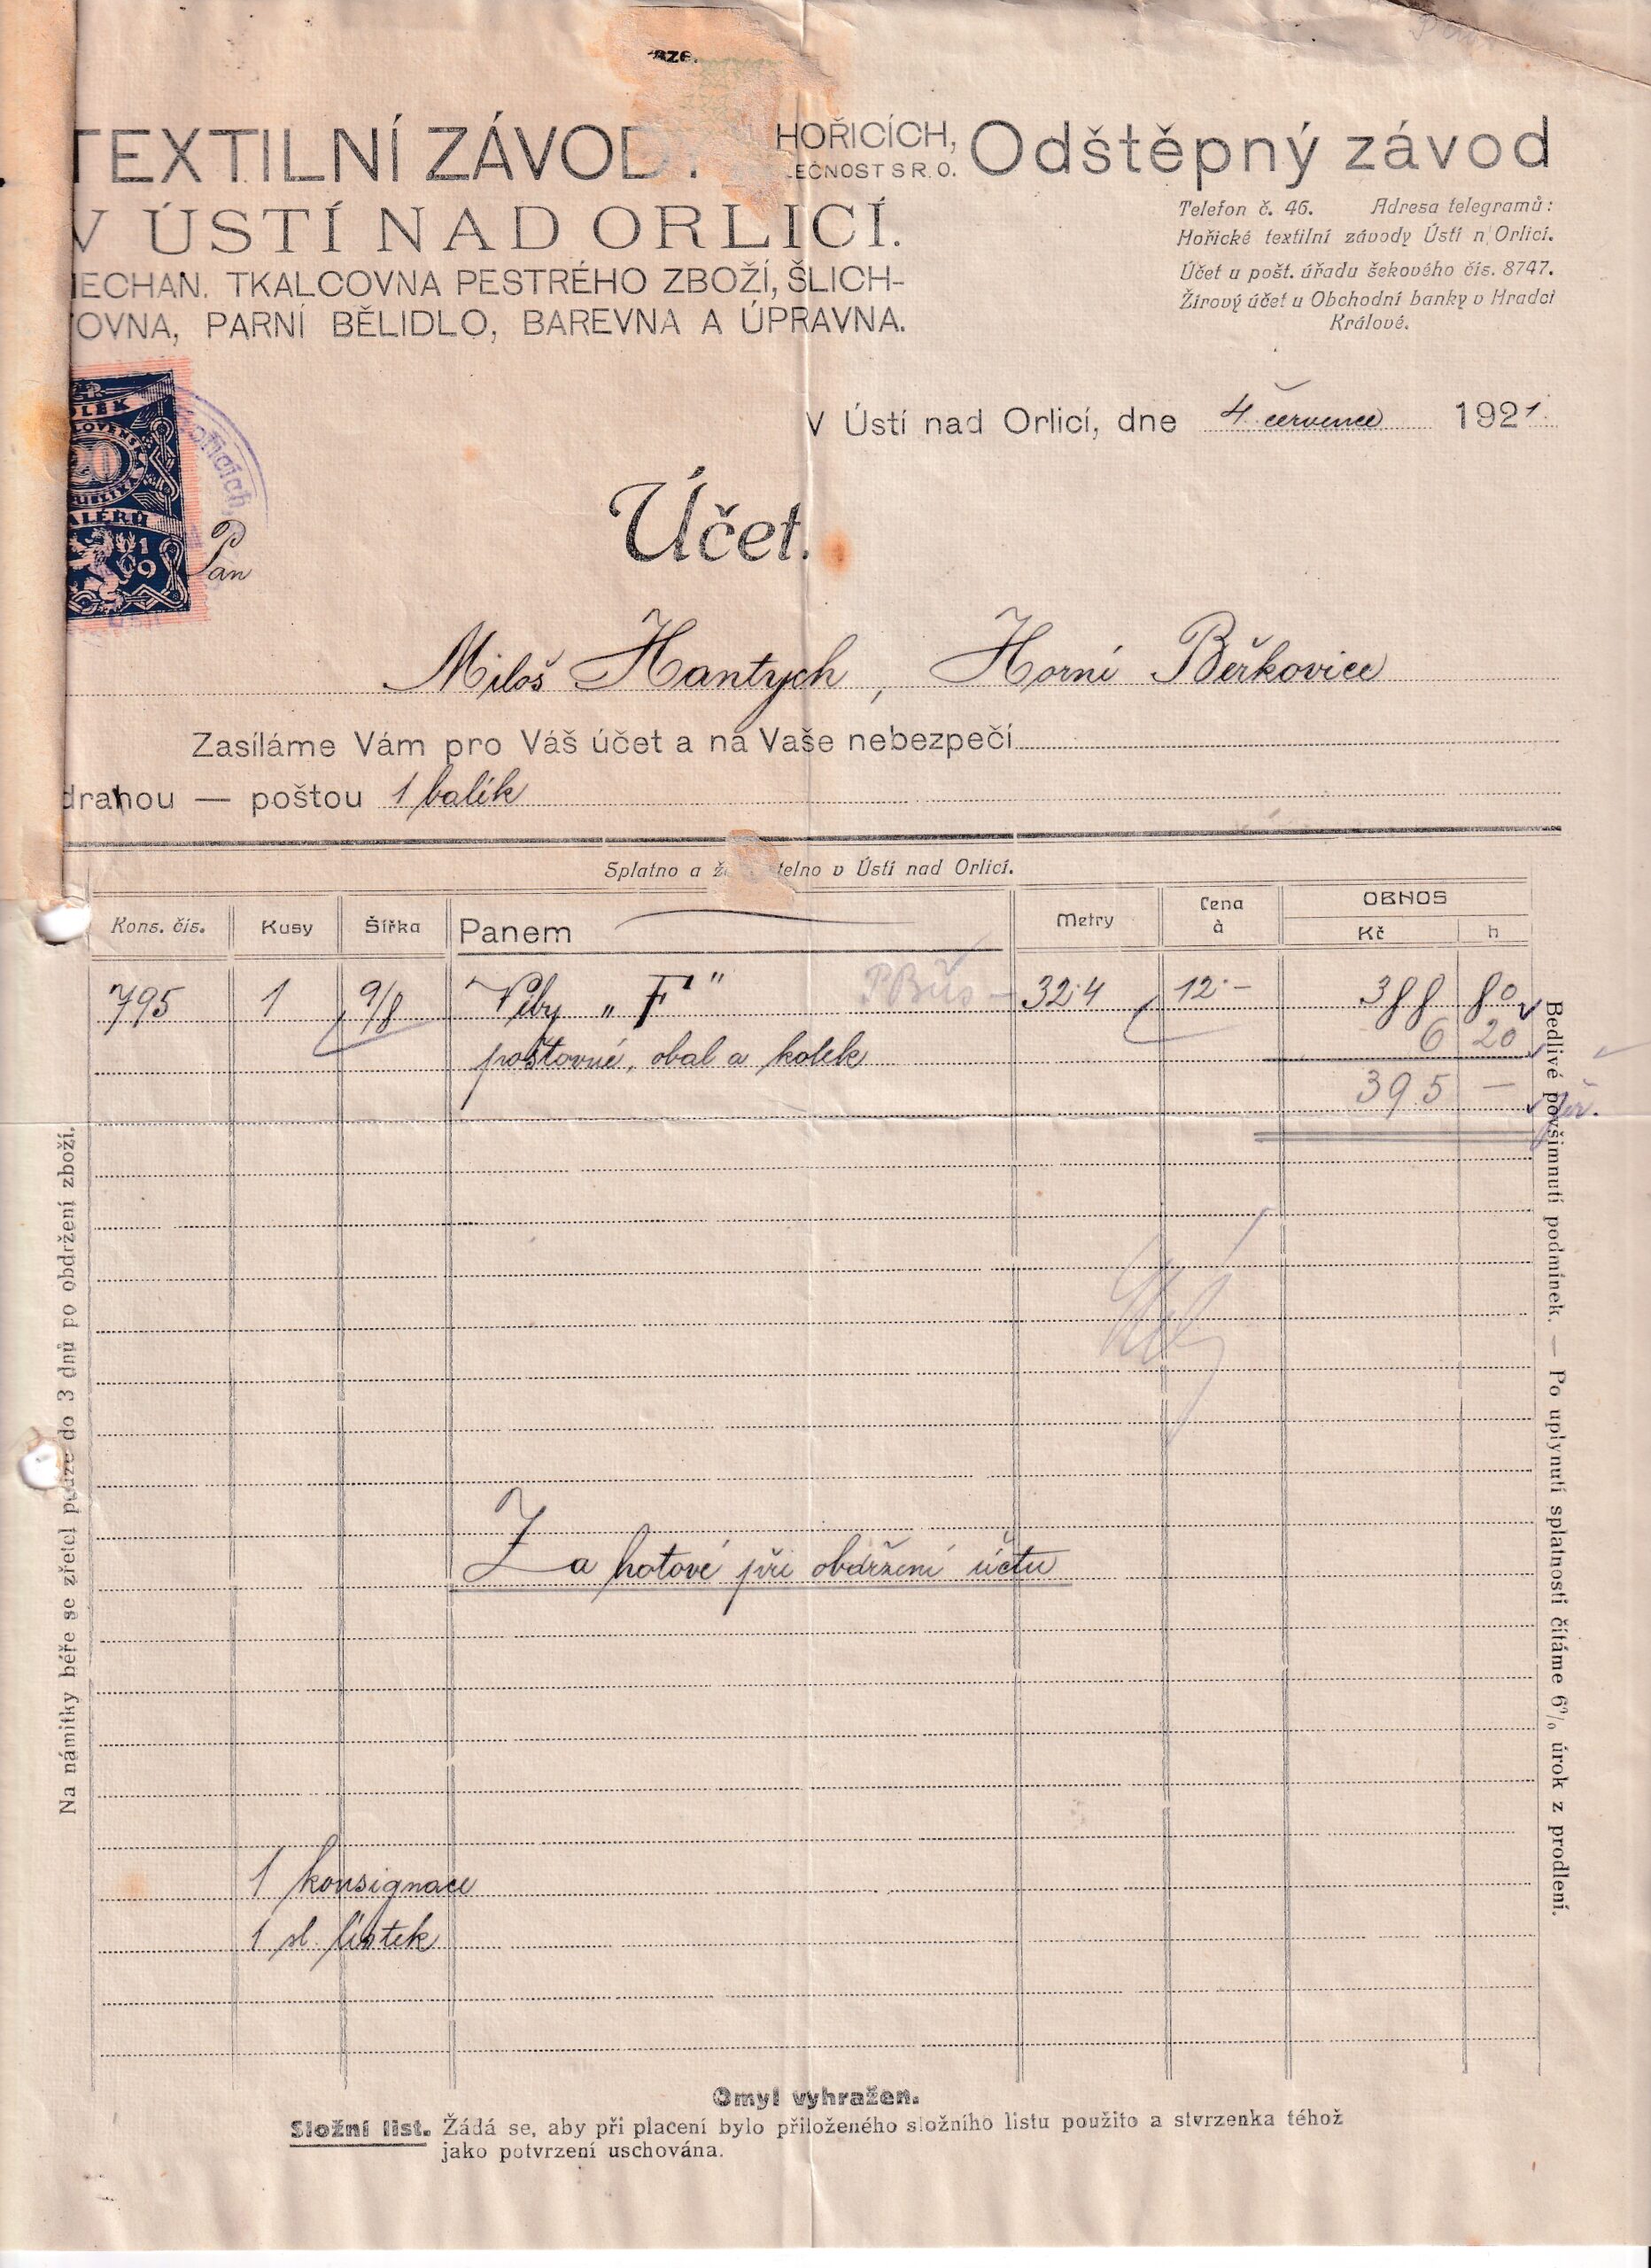 TEXTILNÍ ZÁVOD HOŘICÍCH, Odštěpný závod
LEČNOST S R. O.
V ÚSTÍ NAD ORLICÍ.
MECHAN. TKALCOVNA PESTRÉHO ZBOŽÍ, ŠLICH-
OVNA, PARNÍ BĚLIDLO, BAREVNA A ÚPRAVNA.
Telefon č. 46. Adresa telegramů:
Hořické textilní závody Ústí n Orlicí.
Účet u pošt. úřadu šekového čís. 8747.
Žirový účet u Obchodní banky v Hradci
Králové.
V Ústí nad Orlicí, dne 4. července 1921.
Účet.
Pan
Miloš Hantych, Horní Běřkovice
Zasíláme Vám pro Váš účet a na Vaše nebezpečí
drahou — poštou 1 balík
Splatno a ž telno v Ústí nad Orlicí.
Kons. čís. Kusy Šířka Panem Metry Cena à OBNOS Kč h
795 1 9/8 „F" 32·4 12·— 388 80
poštovné, obal a kolek 6 20
395 —
Za hotové při obdržení účtu
1 konsignace
1 sl. lístek
Na námitky béře se zřetel pouze do 3 dnů po obdržení zboží.
Bedlivé povšimnutí podmínek. — Po uplynutí splatnosti čítáme 6% úrok z prodlení.
Omyl vyhražen.
Složní list. Žádá se, aby při placení bylo přiloženého složního listu použito a stvrzenka téhož
jako potvrzení uschována.